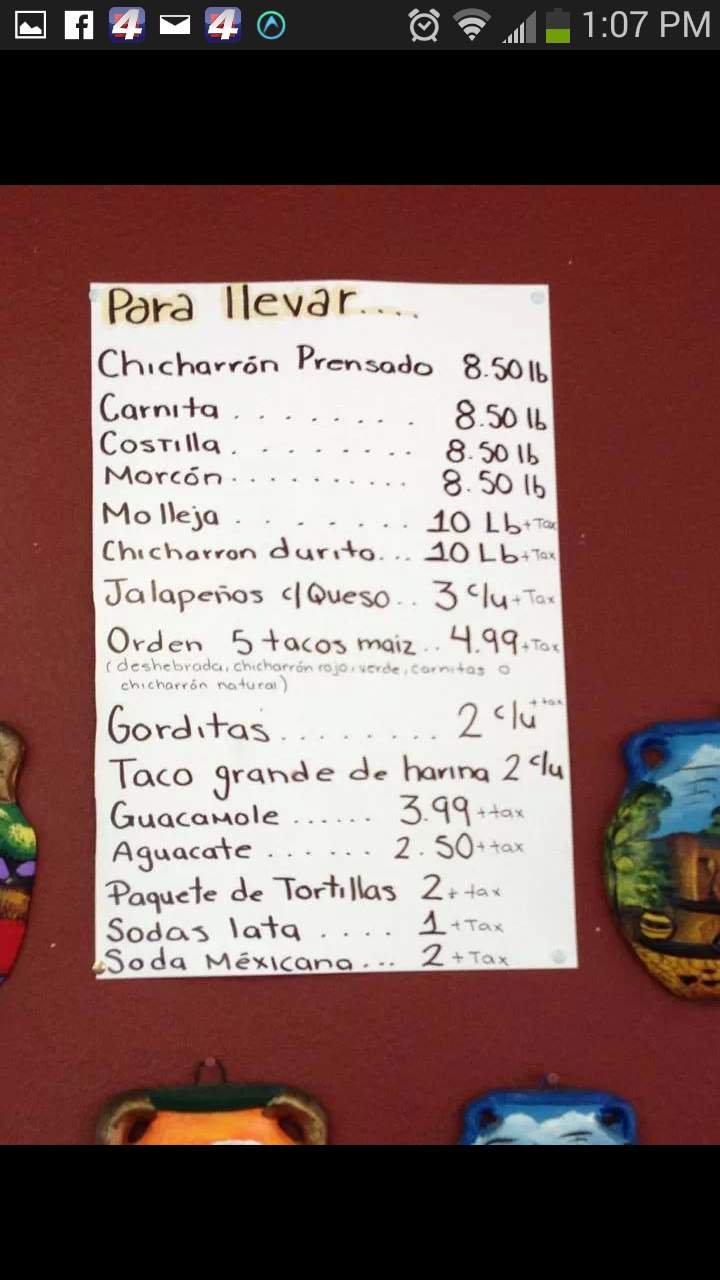 4
4
1:07 PM
Para llevar....
Chicharrón Prensado 8.50 lb
Carnita . . . . . . . . . 8.50 lb
Costilla . . . . . . . . . 8.50 lb
Morcón . . . . . . . . . . 8.50 lb
Molleja . . . . . . . 10 Lb + Tax
Chicharron durito... 10 Lb + Tax
Jalapeños c/Queso.. 3 c/u + Tax
Orden 5 tacos maiz.. 4.99 + Tax
(deshebrada, chicharrón rojo, verde, carnitas o
chicharrón natural)
Gorditas . . . . . . . . 2 c/u + tax
Taco grande de harina 2 c/u
Guacamole ...... 3.99 + tax
Aguacate . . . . . . 2.50 + tax
Paquete de Tortillas 2 + tax
Sodas lata . . . . 1 + Tax
Soda Méxicana... 2 + Tax